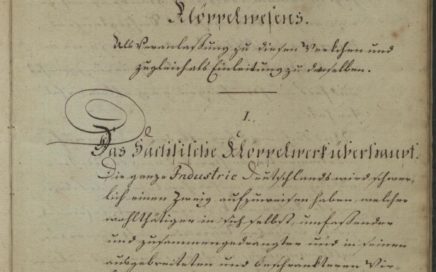 Klöppelwesens.
Als Veranlassung zu diesen Werkchen und
zugleich als Einleitung zu demselben.
I.
Das Sächsische Klöppelwerk überhaupt.
Die ganze Industrie Deutschlands wird schwer-
lich einen Zweig aufzuweisen haben, welcher
wohlthätiger in sich selbst, umfassender
und zusammengedrängter und in seinen
ausgebreiteten und beschränkteren Wir-